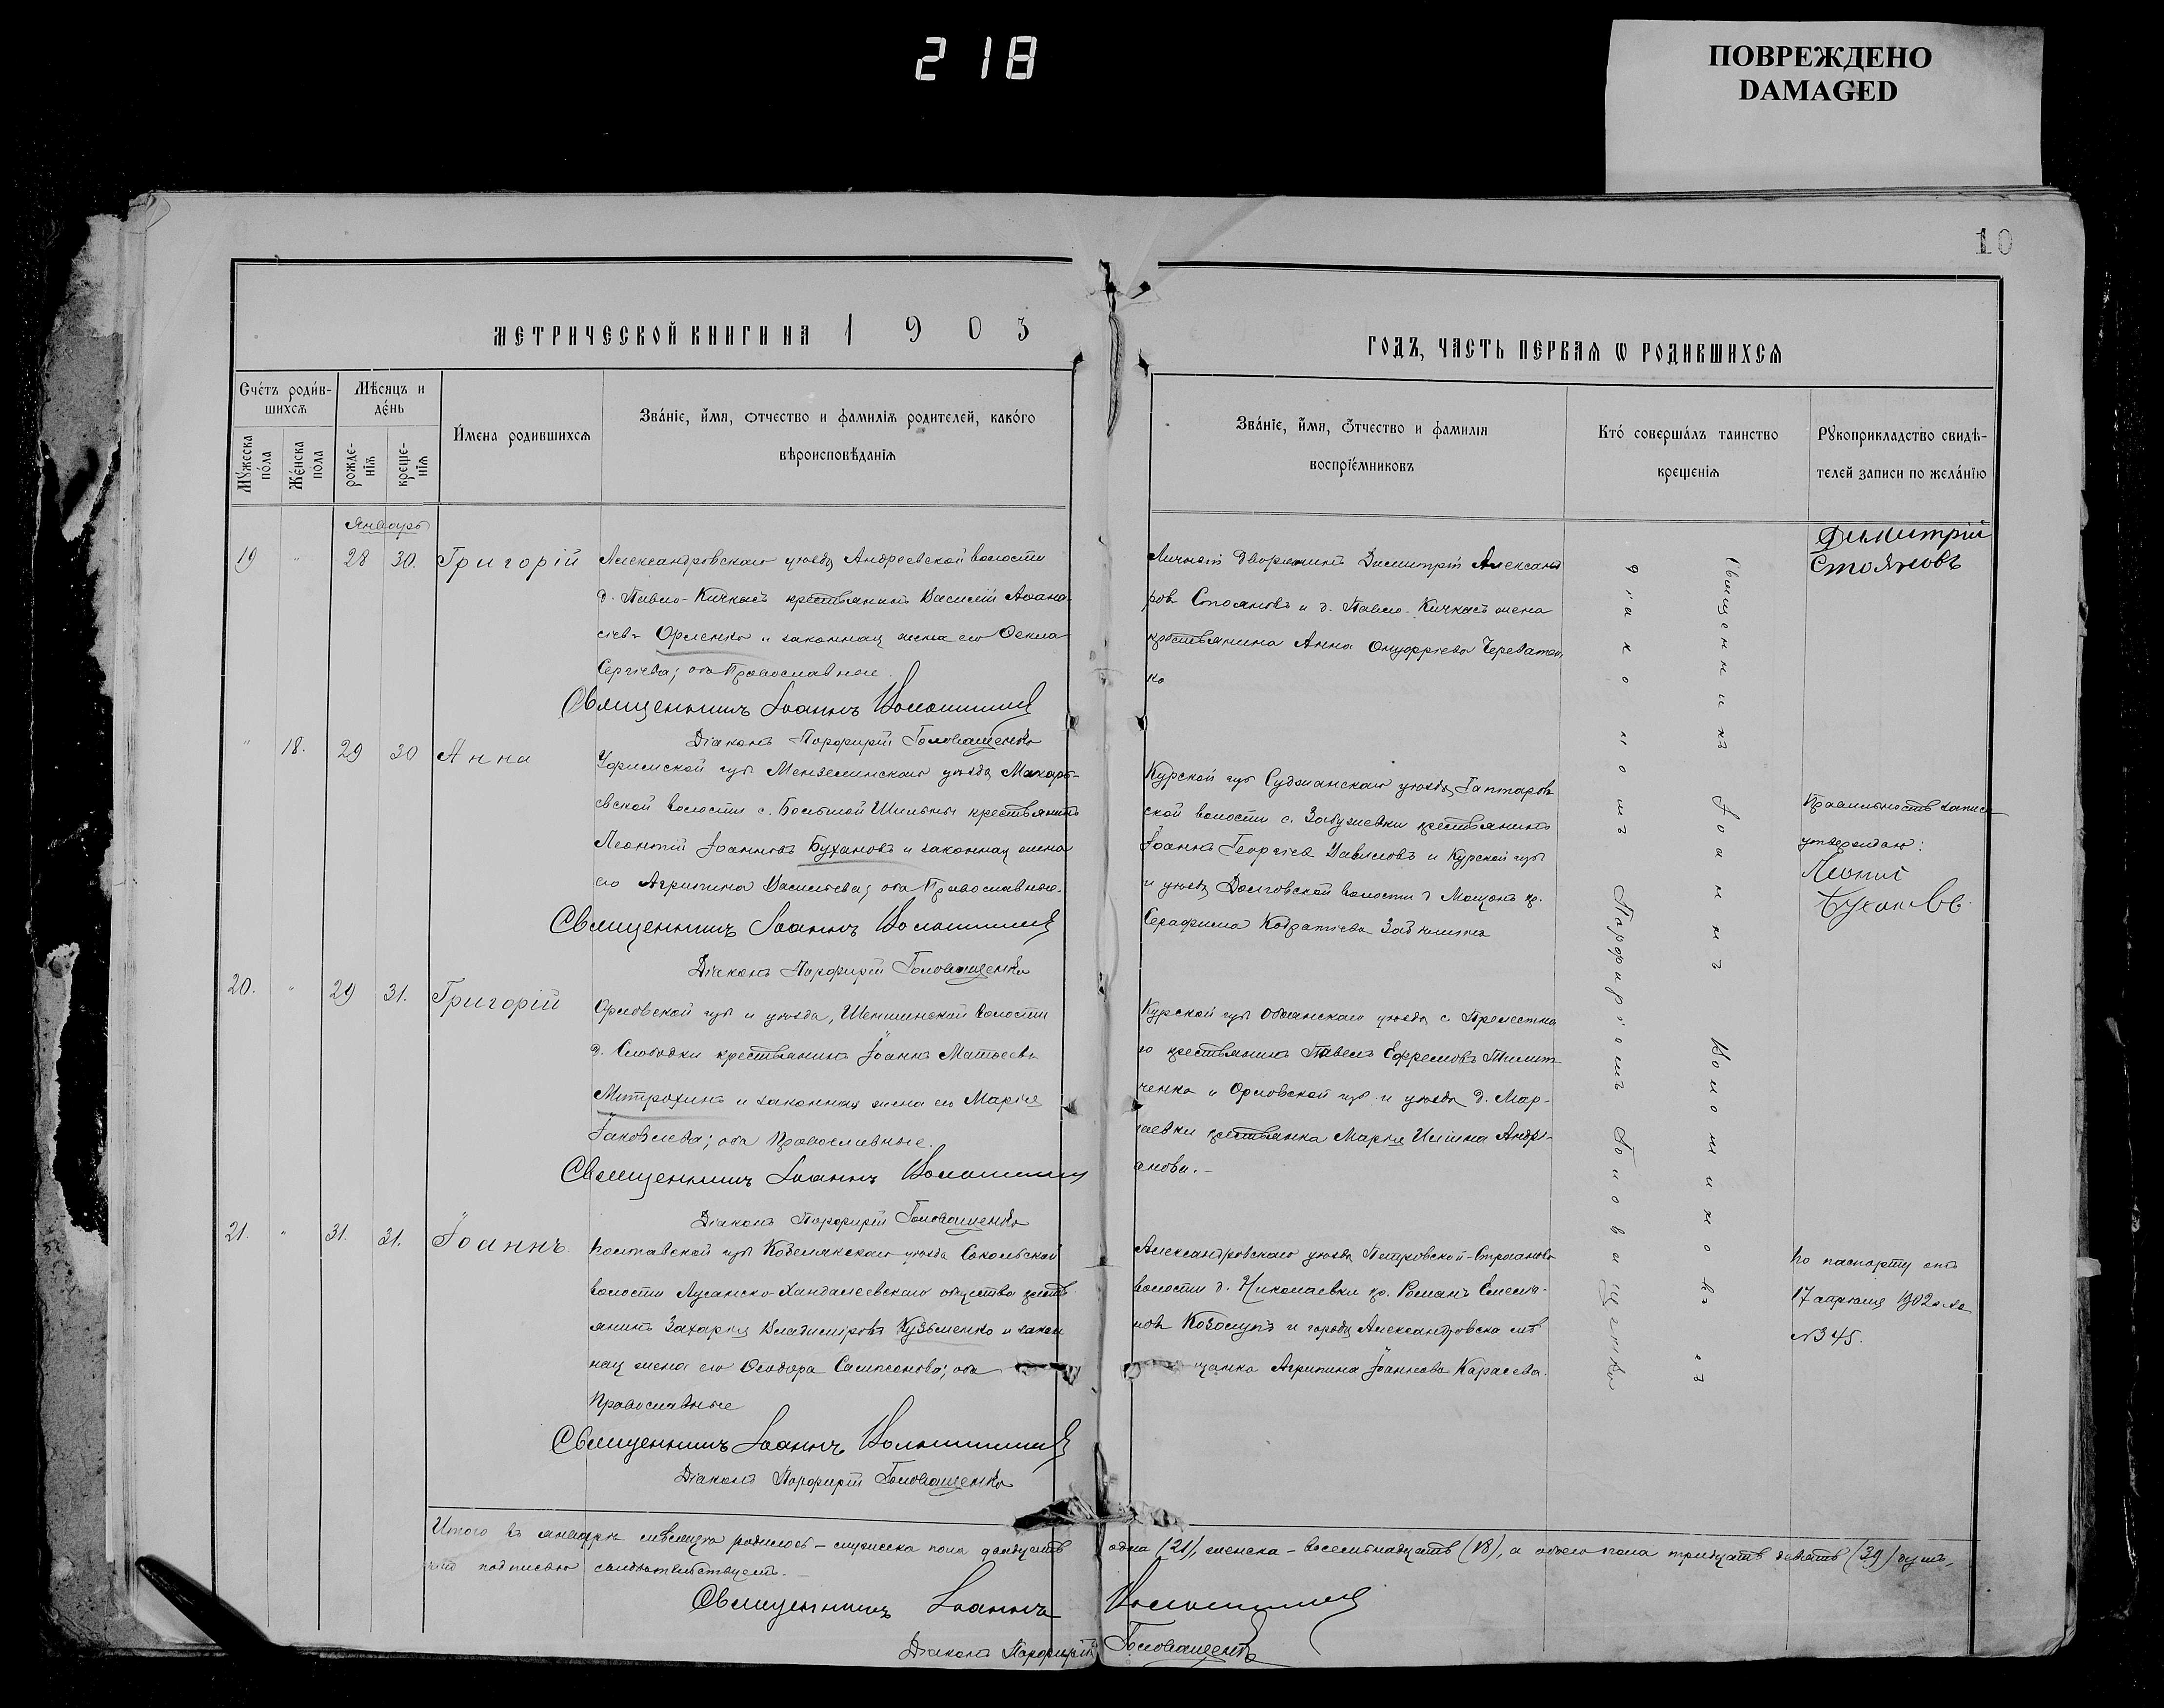 218
ПОВРЕЖДЕНО
DAMAGED
10
МЕТРИЧЕСКОЙ КНИГИ НА 1903
ГОДЪ, ЧАСТЬ ПЕРВАЯ Ѡ РОДИВШИХСЯ
Счéтъ родѝв-
шихся
Мѣсяцъ и
дéнь
Мꙋ́жеска
пóла
Жéнска
пóла
рожде-
нїя
креще-
нїя
И́мена родившихся
Звáнїе, и́мя, ѻтчество и фамилїя родителей, какóго
вѣроисповѣ́данїя
Звáнїе, и́мя, ѻтчество и фамилїя
воспрїéмниковъ
Ктó совершáлъ таинство
крещенїя
Рꙋкоприкладство свидѣ-
телей записи по желáнїю
Январь
19 " 28 30. Григорій
Александровскаго уѣзда Андреевской волости
д. Павло-Кичкасъ крестьянинъ Василій Аѳана-
сіевъ Орленко и законная жена его Ѳекла
Сергіева; оба Православные.
Священникъ Іоаннъ Волошиновъ
Діаконъ Порфирій Головащенко
Личный дворянинъ Димитрій Александ
ровъ Стояновъ и д. Павло-Кичкасъ жена
крестьянина Анна Онуфріева Череватен
ко
Димитрій
Стояновъ
" 18. 29 30 Анна
Уфимской губ Мензелинскаго уѣзда Макарь-
евской волости с. Большой Шильны крестьянинъ
Леонтій Іоанновъ Бухановъ и законная жена
его Агрипина Васильева; оба Православные.
Священникъ Іоаннъ Волошиновъ
Діаконъ Порфирій Головащенко
Курской губ Суджанскаго уѣзда
ской волости с. крестьянинъ
Іоаннъ Георгіев Вавиловъ и Курской губ
и уѣзда Долговской волости д кр.
Серафима
Правильность записи
утверждаю:
Леонтій
Бухановъ
20. " 29 31. Григорій
Орловской губ и уѣзда, Шеншинской волости
д. Слободки крестьянинъ Іоаннъ Матѳеевъ
Митрохинъ и законная жена его Марія
Іаковлева; оба Православные.
Священникъ Іоаннъ Волошиновъ
Діаконъ Порфирій Головащенко
Курской губ Обоянскаго уѣзда с. Прелестна
го крестьянинъ Павелъ Ефремовъ
ченко и Орловской губ. и уѣзда д. Мар-
крестьянка Марія Ильина Андрі-
анова.
21. " 31. 31. Іоаннъ.
Полтавской губ Кобелякскаго уѣзда Сокольской
волости Лучанско-Хандалеевскаго общества крестья
янинъ Захарія Владиміровъ Кузьменко и закон
ная жена его Ѳеодора Сампсонова; оба
Православные
Священникъ Іоаннъ Волошиновъ
Діаконъ Порфирій Головащенко
Александровскаго уѣзда Петровской-Строганово
волости д. Николаевки кр. Романъ Симео-
новъ Козолупъ и города Александровска мѣ
щанка Агрипина Іоаннова Карасева.
По паспорту отъ
17 апрѣля 1902 года
№345.
Священникъ Іоаннъ Волошиновъ съ
діакономъ Порфиріемъ Головащенко
Итого въ январѣ мѣсяцѣ родилось – мужеска пола двадцать одна (21), женска – восемнадцать (18), а обоего пола тридцать девять (39) душъ,
подписью свидѣтельствуемъ.
Священникъ Іоаннъ Волошиновъ
Діаконъ Порфирій Головащенко